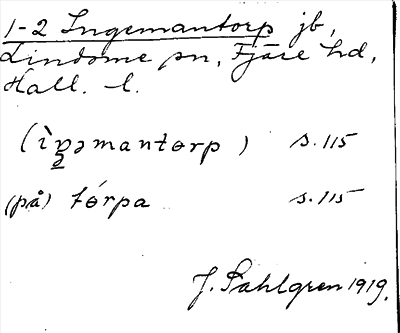 1-2 Ingemantorp jb,
Lindome sn, Fjäre hd,
Hall. l.
(ìŋəmantɵrp) s. 115
(på) tórpa s. 115
J. Sahlgren 1919.